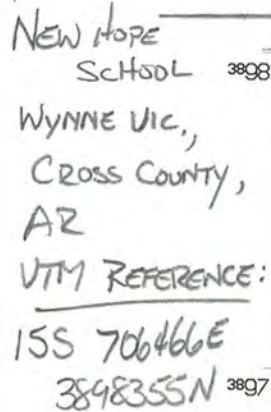 NEW HOPE
SCHOOL 3898
WYNNE VIC.,
CROSS COUNTY,
AR
UTM REFERENCE:
15S 706466E
3898355N 3897